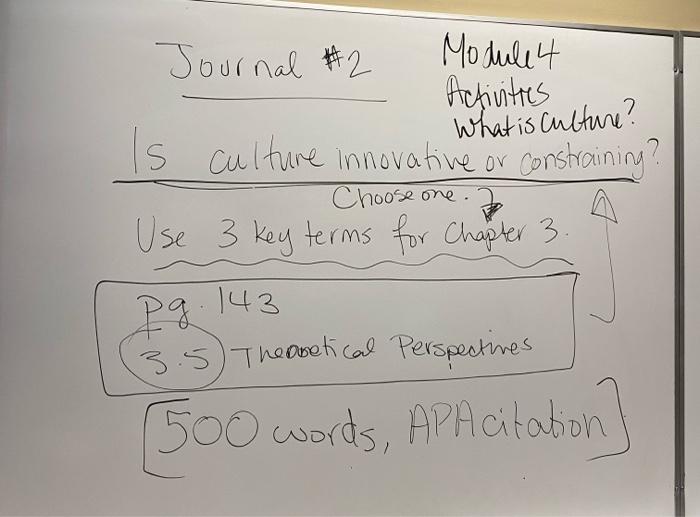 Journal #2
Module 4
Activities
What is Culture?
Is culture innovative or constraining?
Choose one.
Use 3 key terms for Chapter 3.
pg. 143
3.5 Theoretical Perspectives
[500 words, APA citation]